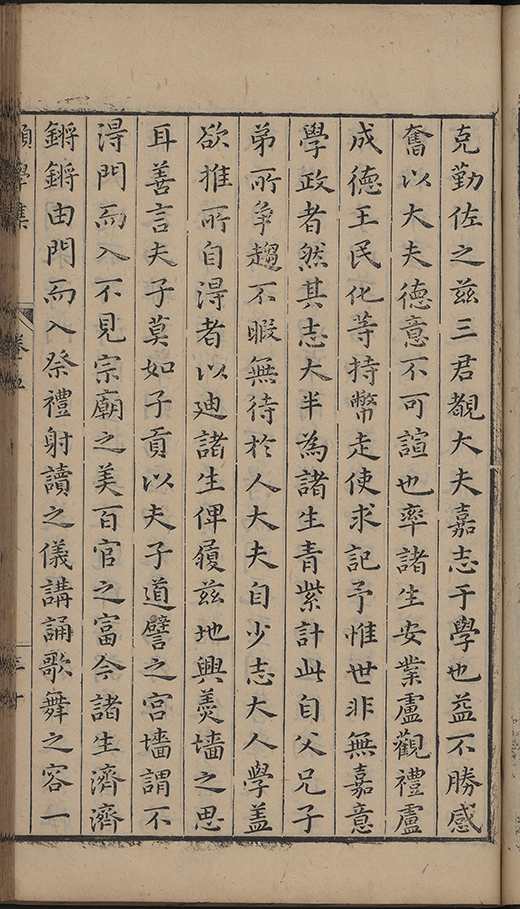 克勤佐之茲三君覩大夫嘉志于學也益不勝感
奮以大夫德意不可諠也率諸生安業盧觀禮盧
成德王民化等持幣走使求記予惟世非無嘉意
學政者然其志大半為諸生青紫計此自父兄子
弟所爭趨不暇無待於人大夫自少志大人學盖
欲推所自得者以迪諸生俾履茲地興羹墻之思
耳善言夫子莫如子貢以夫子道譬之宮墻謂不
得門而入不見宗廟之美百官之富今諸生濟濟
鏘鏘由門而入祭禮射讀之儀講誦歌舞之容一
學集
卷五